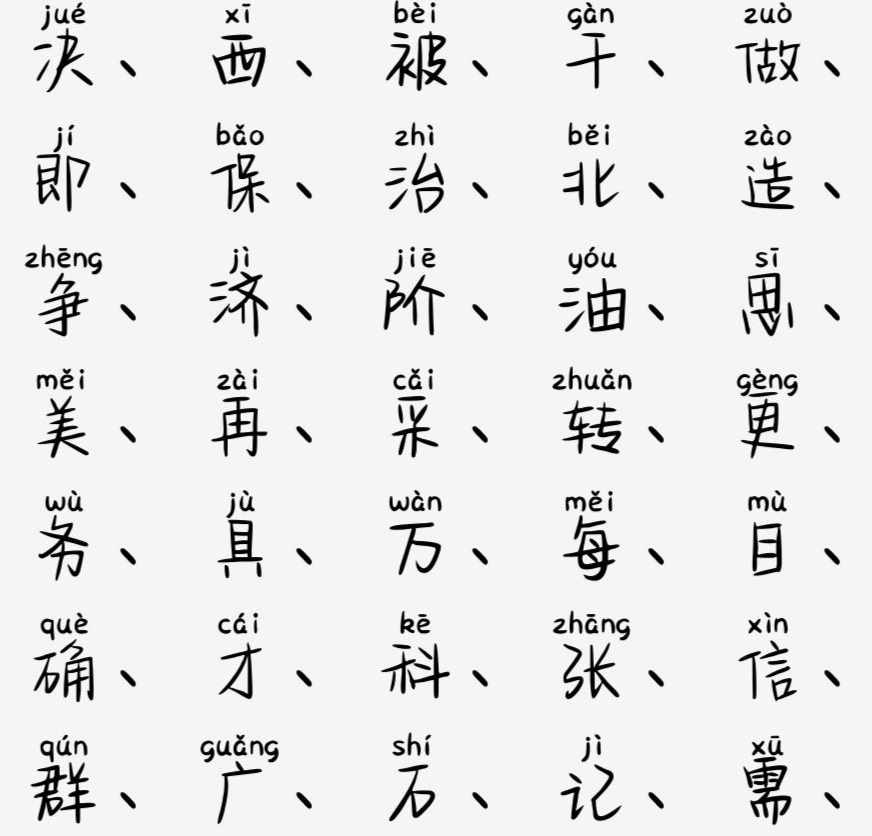 jué xī bèi gàn zuò
决、西、被、干、做、
jí bǎo zhì běi zào
即、保、治、北、造、
zhēng jì jiē yóu sī
争、济、阶、油、思、
měi zài cǎi zhuǎn gèng
美、再、采、转、更、
wù jù wàn měi mù
务、具、万、每、目、
què cái kē zhāng xìn
确、才、科、张、信、
qún guǎng shí jì xū
群、广、石、记、需、